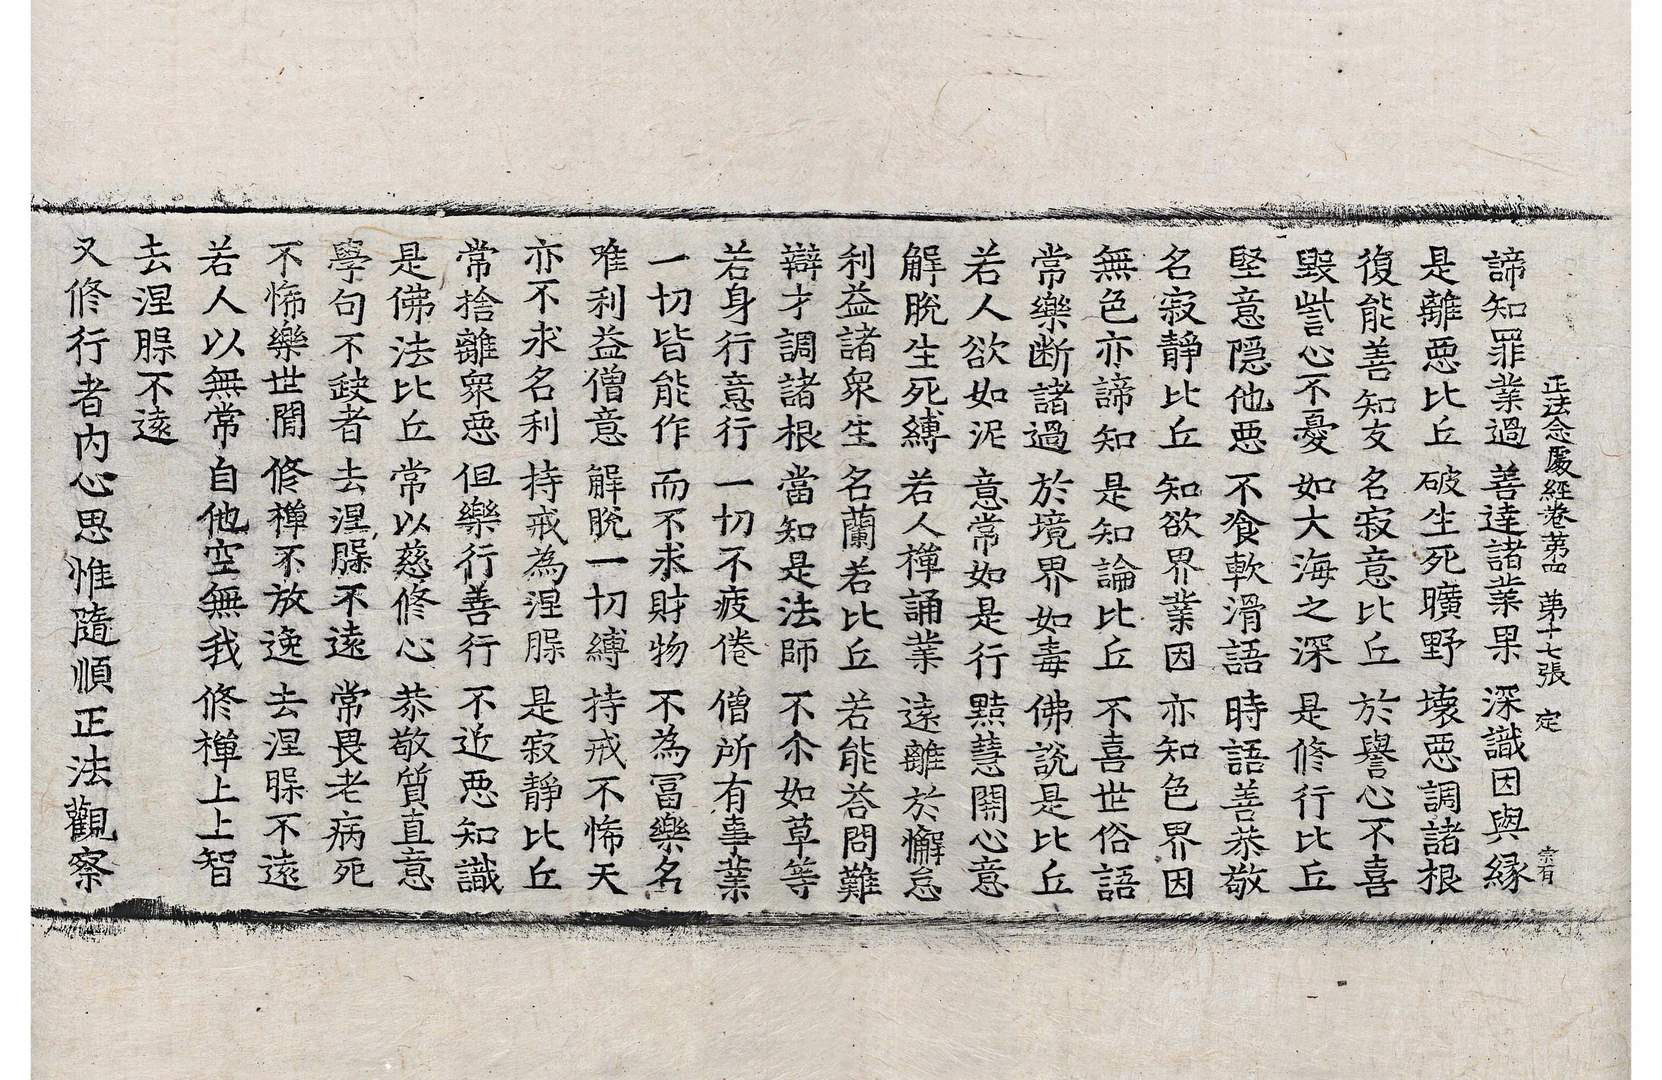 正法念處經卷第四 第十七張 定
宗有
諦知罪業過 善達諸業果 深識因與緣
是離惡比丘 破生死曠野 壞惡調諸根
復能善知友 名寂意比丘 於譽心不喜
毀呰心不憂 如大海之深 是修行比丘
堅意隱他惡 不飡軟滑語 時語善恭敬
名寂靜比丘 知欲界業因 亦知色界因
無色亦諦知 是知論比丘 不喜世俗語
常樂断諸過 於境界如毒 佛說是比丘
若人欲如泥 意常如是行 黠慧關心意
解脫生死縛 若人禪誦業 遠離於懈怠
利益諸衆生 名蘭若比丘 若能荅問難
辯才調諸根 當知是法師 不尒如草等
若身行意行 一切不疲倦 僧所有事業
一切皆能作 而不求財物 不為冨樂名
唯利益僧意 解脫一切縛 持戒不怖天
亦不求名利 持戒為涅脲 是寂靜比丘
常捨離衆惡 但樂行善行 不近惡知識
是佛法比丘 常以慈修心 恭敬質直意
學句不缺者 去涅脲不遠 常畏老病死
不怖樂世間 修禪不放逸 去涅脲不遠
若人以無常 自他空無我 修禪上上智
去涅脲不遠
又修行者内心思惟隨順正法觀察